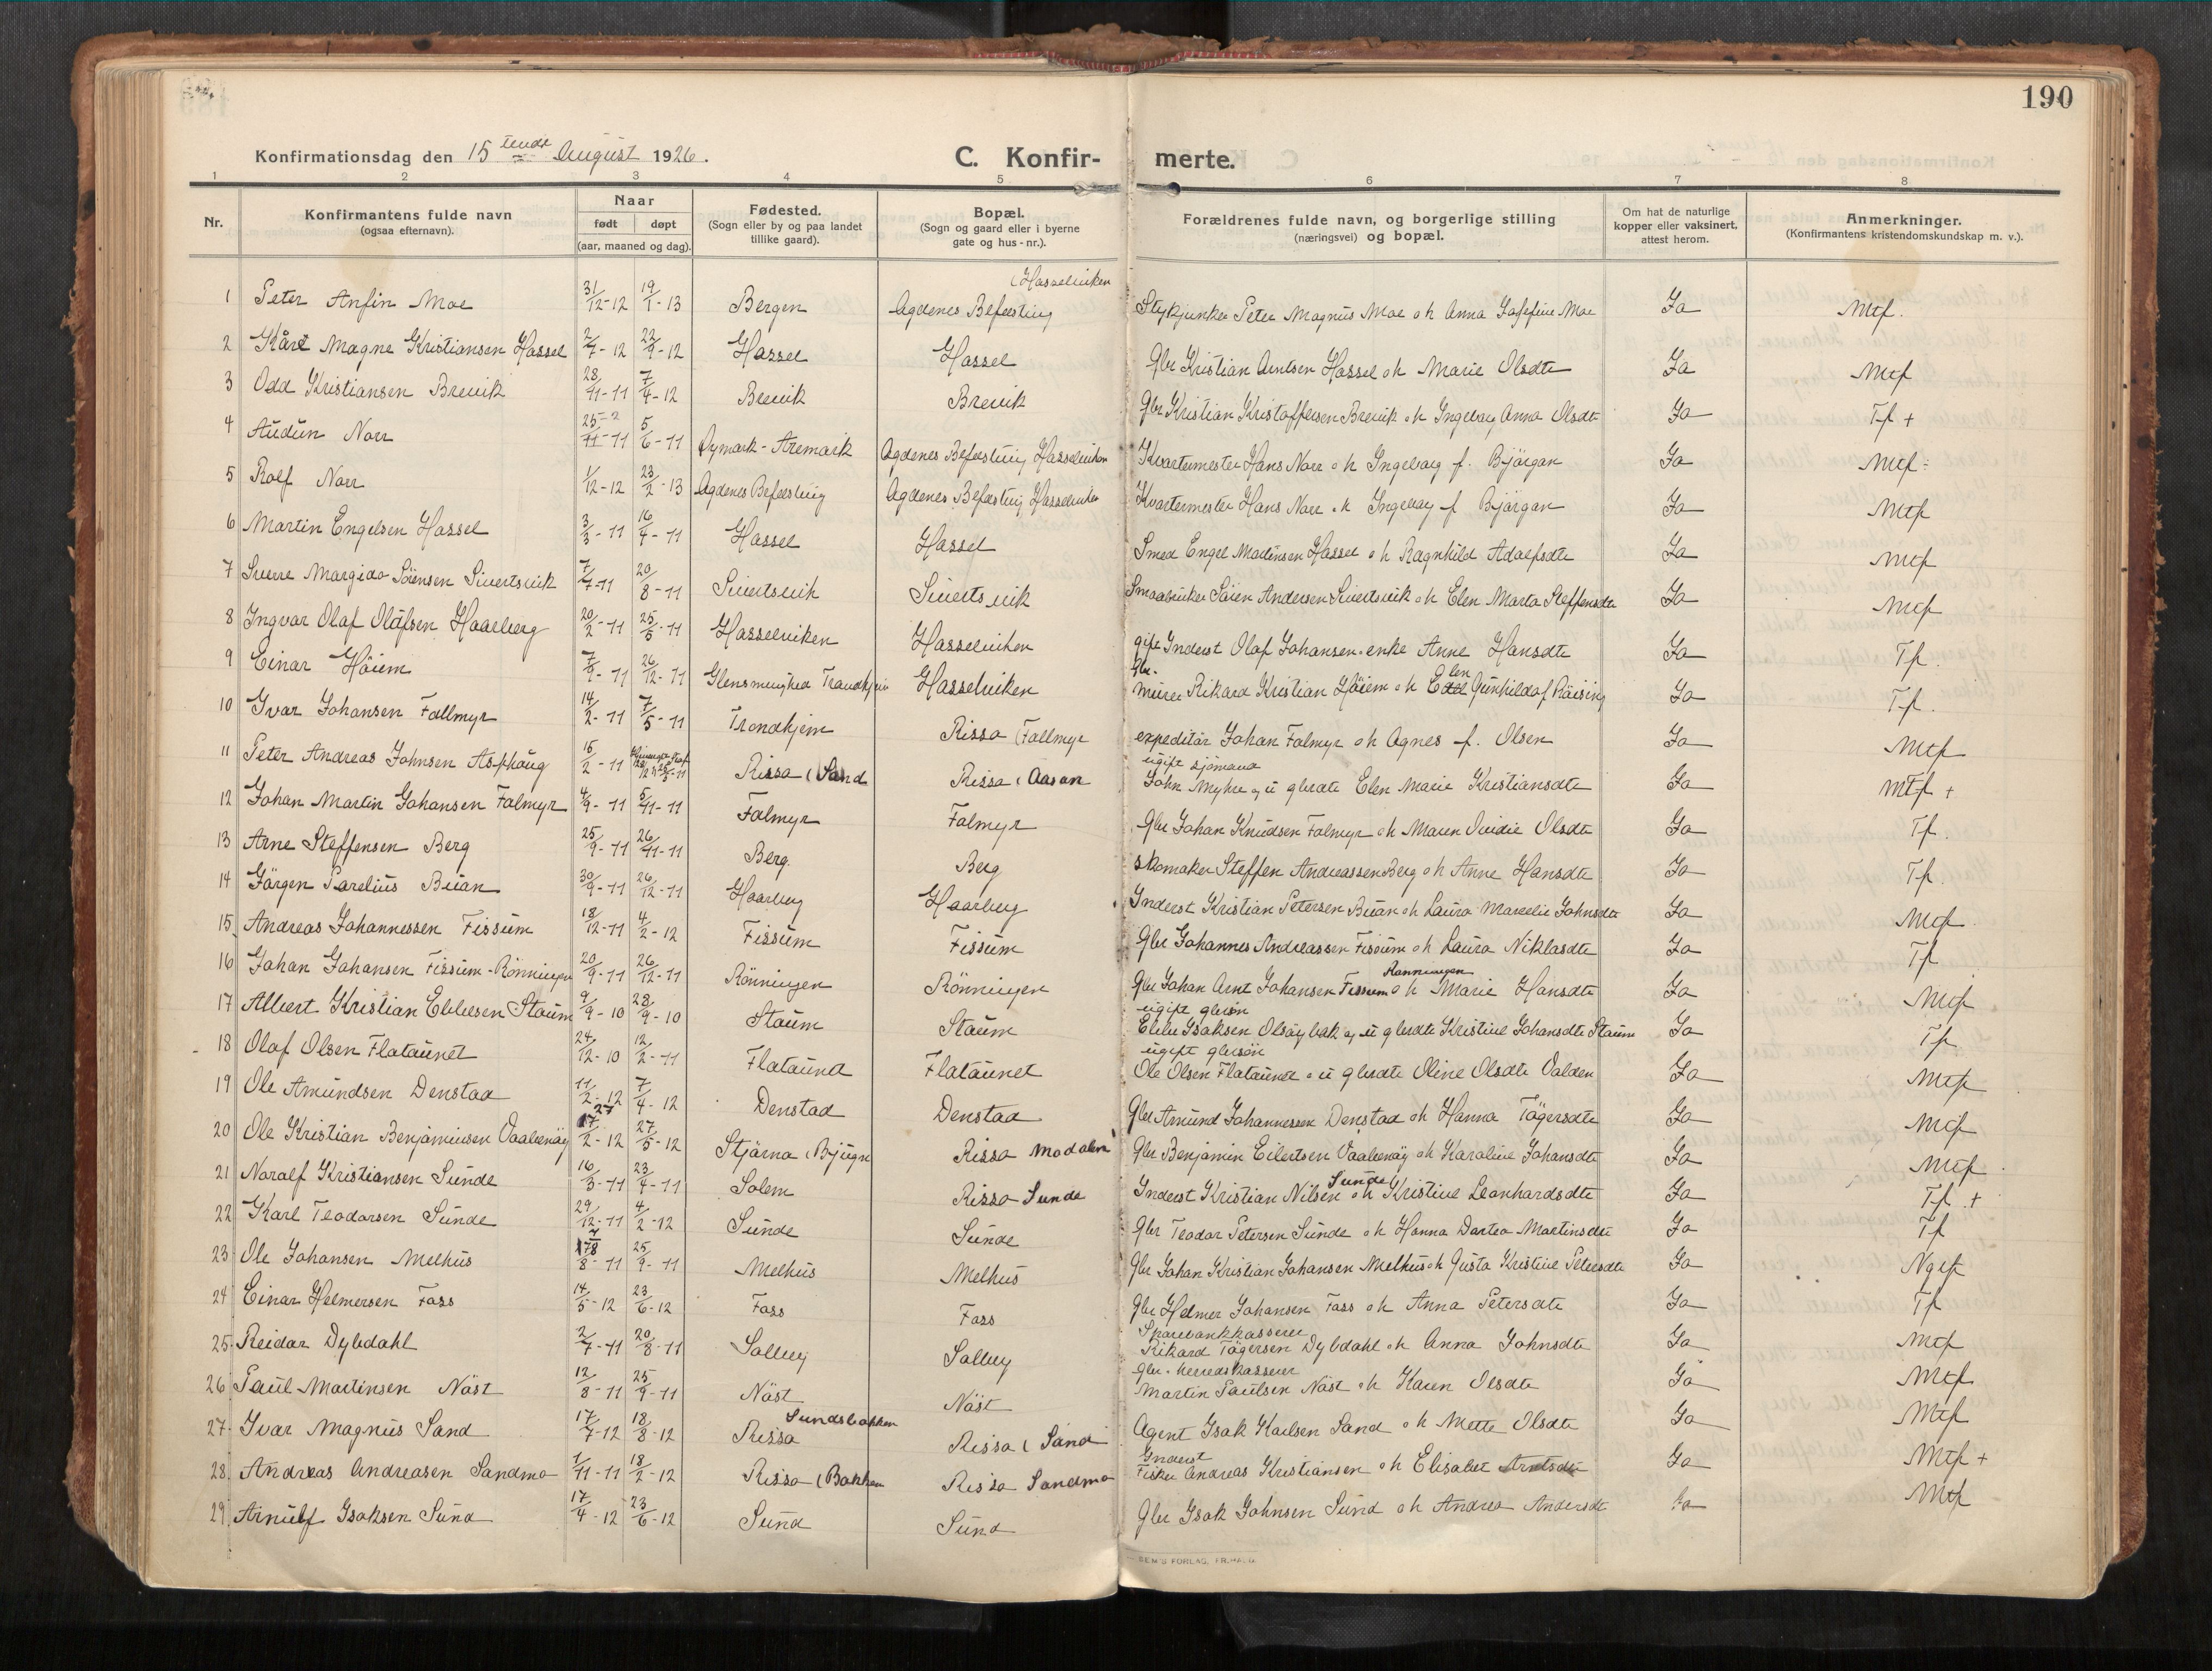 190
Konfirmationsdag den 15 tende August 1926.
C. Konfir- merte.
1 2 3 4 5 6 7 8
Nr.
Konfirmantens fulde navn
(ogsaa efternavn).
Naar
født døpt
(aar, maaned og dag).
Fødested.
(Sogn eller by og paa landet
tillike gaard).
Bopæl.
(Sogn og gaard eller i byerne
gate og hus-nr.).
Forældrenes fulde navn, og borgerlige stilling
(næringsvei) og bopæl.
Om hat de naturlige
kopper eller vaksinert,
attest herom.
Anmerkninger.
(Konfirmantens kristendomskundskap m. v.).
(Hasselviken
1 Peter Anfin Moe 31/12-12 19/1-13 Bergen Agdenes Befæsting Stykjunker Peter Magnus Moe o h Anna Josefine Moe Ja Mtf.
2 Kåre Magne Kristiansen Hassel 2/7-12 22/9-12 Hassel Hassel Gbr Kristian Arntsen Hassel o h Marie Olsdtr Ja Mtf
3 Odd Kristiansen Brevik 28/11-11 7/4-12 Brevik Brevik Gbr Kristian Kristoffersen Brevik o h Ingeborg Anna Olsdtr Ja Tf +
4 Audun Norr 25/11-11 5/6-11 Øymark-Aremark Agdenes Befæsting Hasselviken Kvartermester Hans Norr o h Ingeborg f. Bjørgan Ja Mtf
5 Rolf Norr 1/12-12 23/2-13 Agdenes Befæsting Agdenes Befæsting Hasselviken Kvartermester Hans Norr o h Ingeborg f Bjørgan Ja Mtf
6 Martin Engelsen Hassel 3/3-11 16/4-11 Hassel Hassel Smed Engel Martinsen Hassel o h Ragnhild Adolfsdtr Ja Mtf
7 Sverre Margido Sörensen Sivertsvik 7/7-11 20/8-11 Sivertsvik Sivertsvik Smaabruker Sören Andersen Sivertsvik o h Elen Marta Steffensdtr Ja Mtf
8 Ingvar Olaf Olafsen Haarberg 20/2-11 25/5-11 Hasselviken Hasselviken gift Inderst Olaf Johansen o enke Anne Hansdtr Ja Tf.
Gbr.
9 Einar Höiem 7/9-11 26/12-11 Glensmenighed Trondhjem Hasselviken murer Rikard Kristian Höiem o h Elen Gunhild af Röising Ja Tf.
10 Ivar Johansen Fallmyr 14/2-11 7/5-11 Trondhjem Rissa (Fallmyr expeditör Johan Falmyr o h Agnes f. Olsen Ja Mtf
ugift sjömand
11 Peter Andreas Johnsen Asphaug 15/2-11 Rissa (Sand Rissa (Aasan John Myhre og u gbrdtr Elen Marie Kristiansdtr Ja Mtf +
12 Johan Martin Johansen Falmyr 4/9-11 5/11-11 Falmyr Falmyr Gbr Johan Knudsen Falmyr o h Maren Ovidie Olsdtr Ja Tf.
13 Arne Steffensen Berg 25/9-11 26/11-11 Berg Berg skomaker Steffen Andreassen Berg o h Anne Hansdtr Ja Tf.
14 Jörgen Parelius Buan 30/9-11 26/12-11 Haarberg Haarberg Inderst Kristian Petersen Buan o h Laura Marselie Johnsdtr Ja Mtf
15 Andreas Johannessen Fissum 18/12-11 4/2-12 Fissum Fissum Gbr Johannes Andreassen Fissum o h Laura Niklasdtr Ja Tf
16 Johan Johansen Fissum-Rönningen 20/9-11 26/12-11 Rönningen Rönningen Gbr Johan Arnt Johansen Fissum Rønningen o h Marie Hansdtr Ja Mtf
ugift gbrsön
17 Albert Kristian Ebbesen Staum 9/9-10 28/9-10 Staum Staum Ebbe Isaksen Olsöybak og u gbrdtr Kristine Johansdtr Staum Ja Tf
ugift gbrsön
18 Olaf Olsen Flataunet 24/12-10 12/2-11 Flataunet Flataunet Ole Olsen Flataunet o u gbrdtr Oline Olsdtr Valden Ja Mtf
19 Ole Amundsen Denstad 11/2-12 7/4-12 Denstad Denstad Gbr Amund Johannessen Denstad o h Hanna Tögersdtr Ja Mtf
20 Ole Kristian Benjaminsen Vaabenöy 27/2-12 27/5-12 Stjørna (Bjugn Rissa Modalen Gbr Benjamin Eilertsen Vaabenöy o h Karoline Johansdtr Ja Mtf
21 Noralf Kristiansen Sunde 16/3-11 23/4-11 Solem Rissa Sunde Inderst Kristian Nilsen Sunde o h Kristine Leonhardsdtr Ja Tf. +
22 Karl Teodorsen Sunde 29/12-11 4/2-12 Sunde Sunde Gbr Teodor Petersen Sunde o h Hanna Dortea Martinsdtr Ja Tf
23 Ole Johansen Melhus 17/8-11 25/9-11 Melhus Melhus Gbr Johan Kristian Johansen Melhus o h Gusta Kristine Petersdtr Ja Ngtf
24 Einar Helmersen Fass 14/5-12 23/6-12 Fass Fass Gbr Helmer Johansen Fass o h Anna Petersdtr Ja Tf
Sparebankkasserer
25 Reidar Dybdahl 2/7-11 20/8-11 Solberg Solberg Rikard Tögersen Dybdahl o h Anna Johnsdtr Ja Mtf
Gbr. herredskasserer
26 Paul Martinsen Näst 12/8-11 25/9-11 Näst Näst Martin Paulsen Näst o h Karen Olsdtr Ja Mtf
27 Ivar Magnus Sand 17/7-12 18/8-12 Sundsbakken Rissa Rissa (Sand Agent Isak Karlsen Sand o h Mette Olsdtr Ja Mtf
Inderst
28 Andreas Andreasen Sandmo 1/11-11 18/2-12 Rissa (Bakken Rissa Sandmo Fisker Andreas Kristiansen o h Elisabet Arntsdtr Ja Mtf +
29 Arnulf Isaksen Sund 17/4-12 23/6-12 Sund Sund Gbr Isak Johnsen Sund o h Andrea Andersdtr Ja Mtf
SEM'S FORLAG, FR.HALD.